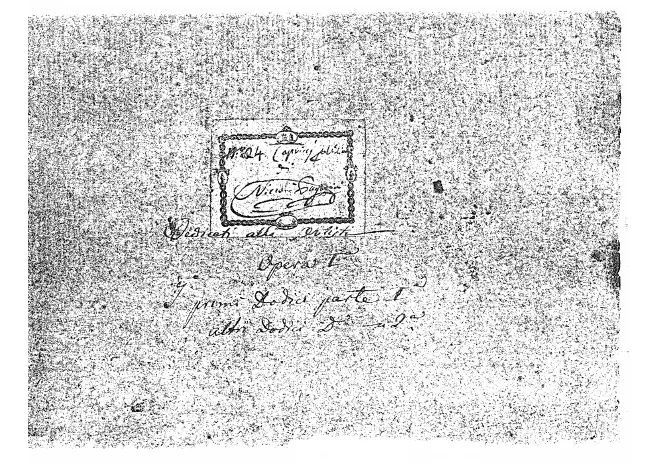 N.° 24 Capricci
di
Nicolò Paganini
Dedicati alli Artisti
Opera 1.ª
I primi Dodici parte 1.ª
altri Dodici D.ª 2.ª